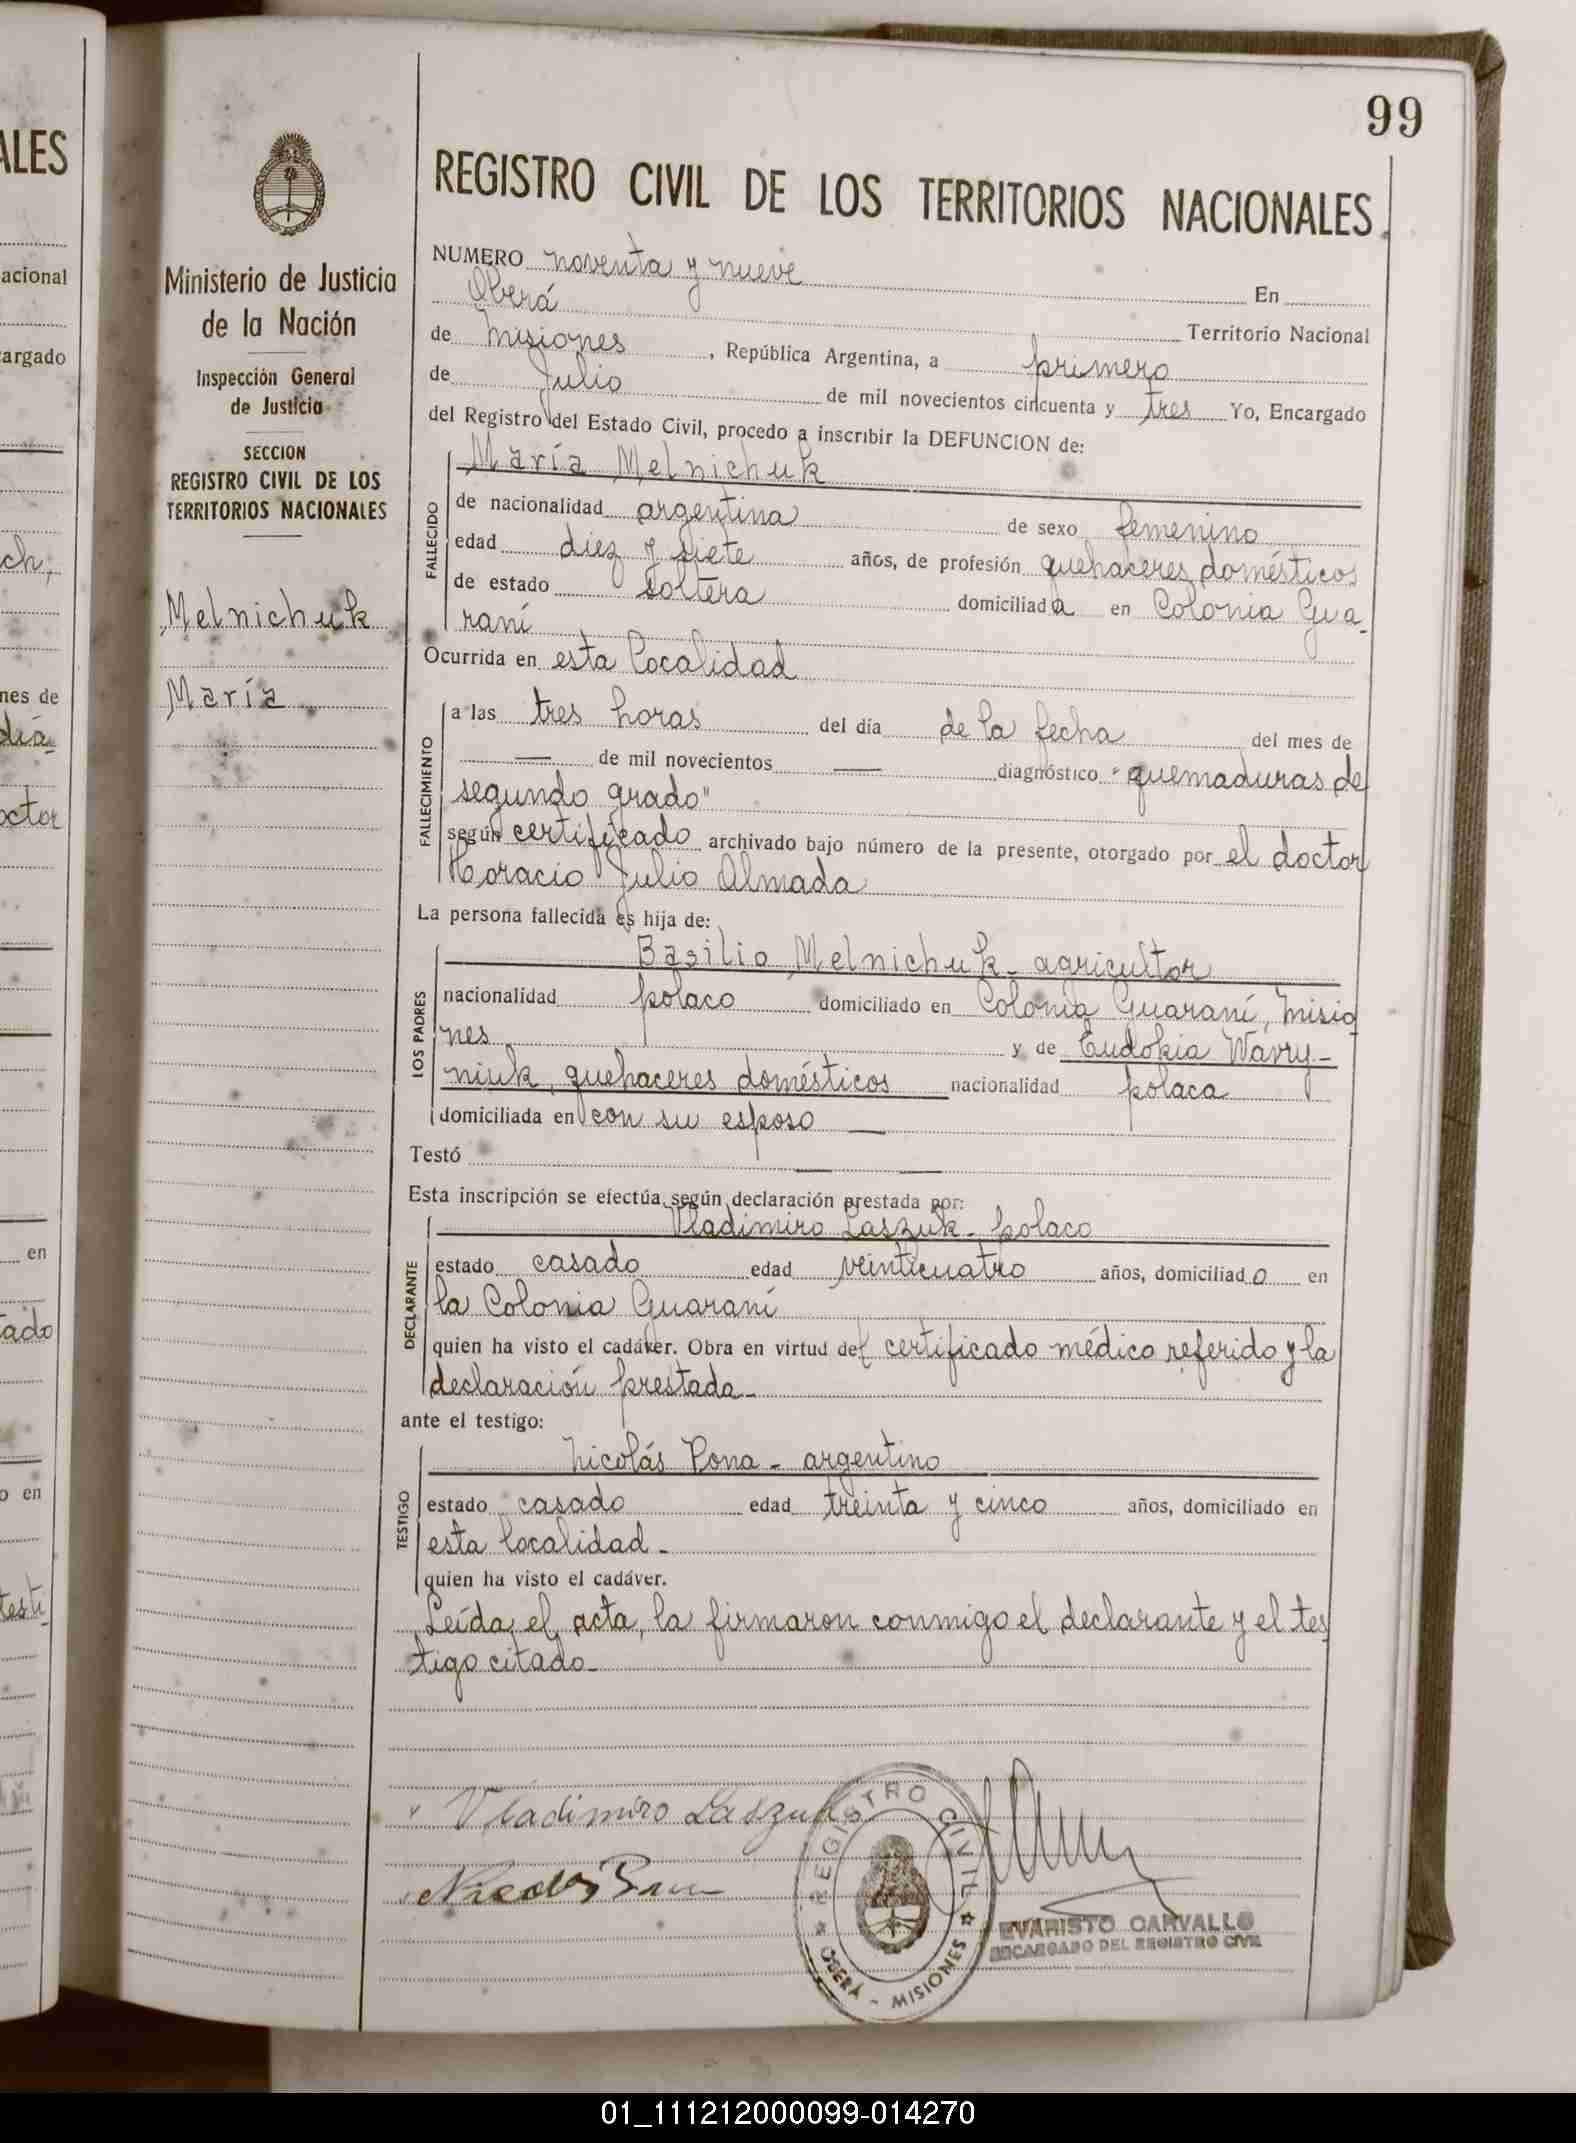 99
REGISTRO CIVIL DE LOS TERRITORIOS NACIONALES
Ministerio de Justicia
de la Nación
Inspección General
de Justicia
SECCION
REGISTRO CIVIL DE LOS
TERRITORIOS NACIONALES
Melnichuk
María
NUMERO noventa y nueve En
Oberá Territorio Nacional
de Misiones, República Argentina, a primero
de Julio de mil novecientos cincuenta y tres Yo, Encargado
del Registro del Estado Civil, procedo a inscribir la DEFUNCION de:
FALLECIDO
María Melnichuk
de nacionalidad argentina de sexo femenino
edad diez y siete años, de profesión quehaceres domésticos
de estado soltera domiciliada en Colonia Gua-
raní
Ocurrida en esta localidad
FALLECIMIENTO
a las tres horas del día de la fecha del mes de
— de mil novecientos — diagnóstico "quemaduras de
segundo grado"
según certificado archivado bajo número de la presente, otorgado por el doctor
Horacio Julio Almada
La persona fallecida es hija de:
LOS PADRES
Basilio Melnichuk - agricultor
nacionalidad polaco domiciliado en Colonia Guaraní, Misio
nes y de Eudokia Wavry-
niuk, quehaceres domésticos nacionalidad polaca
domiciliada en con su esposo —
Testó — —
Esta inscripción se efectúa según declaración prestada por:
DECLARANTE
Vladimiro Laszuk - polaco
estado casado edad veinticuatro años, domiciliado en
la Colonia Guaraní
quien ha visto el cadáver. Obra en virtud del certificado médico referido y la
declaración prestada -
ante el testigo:
TESTIGO
Nicolás Pona - argentino
estado casado edad treinta y cinco años, domiciliado en
esta localidad -
quien ha visto el cadáver.
Leída el acta, la firmaron conmigo el declarante y el tes
tigo citado -
Vladimiro Laszuk
Nicolás
REGISTRO CIVIL
OBERÁ - MISIONES
EVARISTO CARVALLO
ENCARGADO DEL REGISTRO CIVIL
ALES
acional
argado
ch,
nes de
día
octor
en
tado
o en
testi
01_111212000099-014270